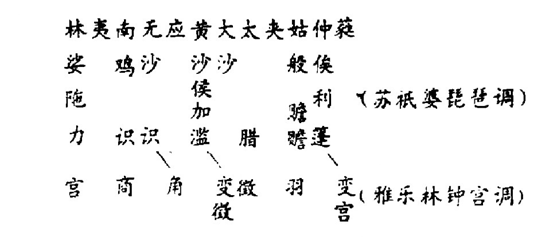 林夷南无应黄大太夹姑仲蕤
娑 鸡沙 沙沙 般俟
侯
陁 利 (苏祇婆琵琶调)
加 赡
力 识识 滥 腊 赡蓬
宫 商 角 变徵 羽 变 (雅乐林钟宫调)
徵 宫